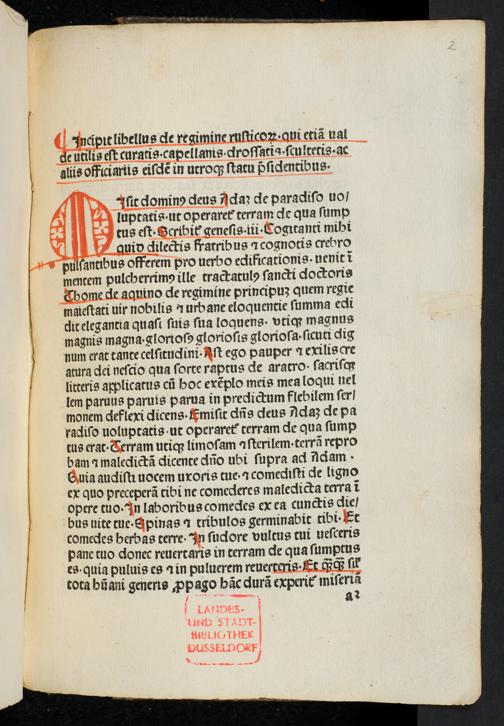 2
¶ Incipit libellus de regimine rusticoꝝ· qui etiā val
de utilis est curatis· capellanis· drossatis· scultetis· ac
aliis officiariis eisdē in utroqꝫ statu p̄sidentibus·
Misit dominꝰ deus Adaꝫ de paradiso uo/
luptatis· ut operaret̄ terram de qua sump
tus est· Scribit̄ genesis· iii· Cogitanti mihi
quid dilectis fratribus ⁊ cognotis crebro
pulsantibus offerem pro uerbo edificationis· uenit ī
mentem pulcherrimꝰ ille tractatulꝰ sancti doctoris
Thome de aquino de regimine principuꝫ quem regie
maiestati uir nobilis ⁊ urbane eloquentie summa edi
dit elegantia quasi suis sua loquens· utiqꝫ magnus
magnis magna· gloriosꝰ gloriosis gloriosa· sicuti dig
num erat tante celsitudini· Ast ego pauper ⁊ exilis cre
atura dei nescio qua sorte raptus de aratro· sacrisqꝫ
litteris applicatus cū hoc exēplo meis mea loqui uel
lem paruus paruis parua in predictum flebilem ser/
monem deflexi dicens· Emisit dn̄s deus Adaꝫ de pa
radiso uoluptatis· ut operaret̄ terram de qua sump
tus erat· Terram utiqꝫ limosam ⁊ sterilem· terrā repro
bam ⁊ maledictā dicente dn̄o ubi supra ad Adam·
Quia audisti uocem uxoris tue· ⁊ comedisti de ligno
ex quo preceperā tibi ne comederes maledicta terra ī
opere tuo· In laboribus comedes ex ea cunctis die/
bus uite tue· Spinas ⁊ tribulos germinabit tibi· Et
comedes herbas terre· In sudore uultus tui uesceris
pane tuo donec reuertaris in terram de qua sumptus
es· quia puluis es ⁊ in puluerem reuerteris· Et qꝫqꝫ sil̄
tota hūani generis ꝓpago hāc durā experit̄ miseriā
a2
LANDES-
UND STADT-
BIBLIOTHEK
DÜSSELDORF